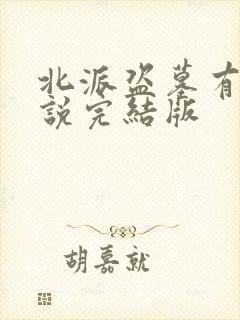 北派盗墓有
說完結版
胡嘉就